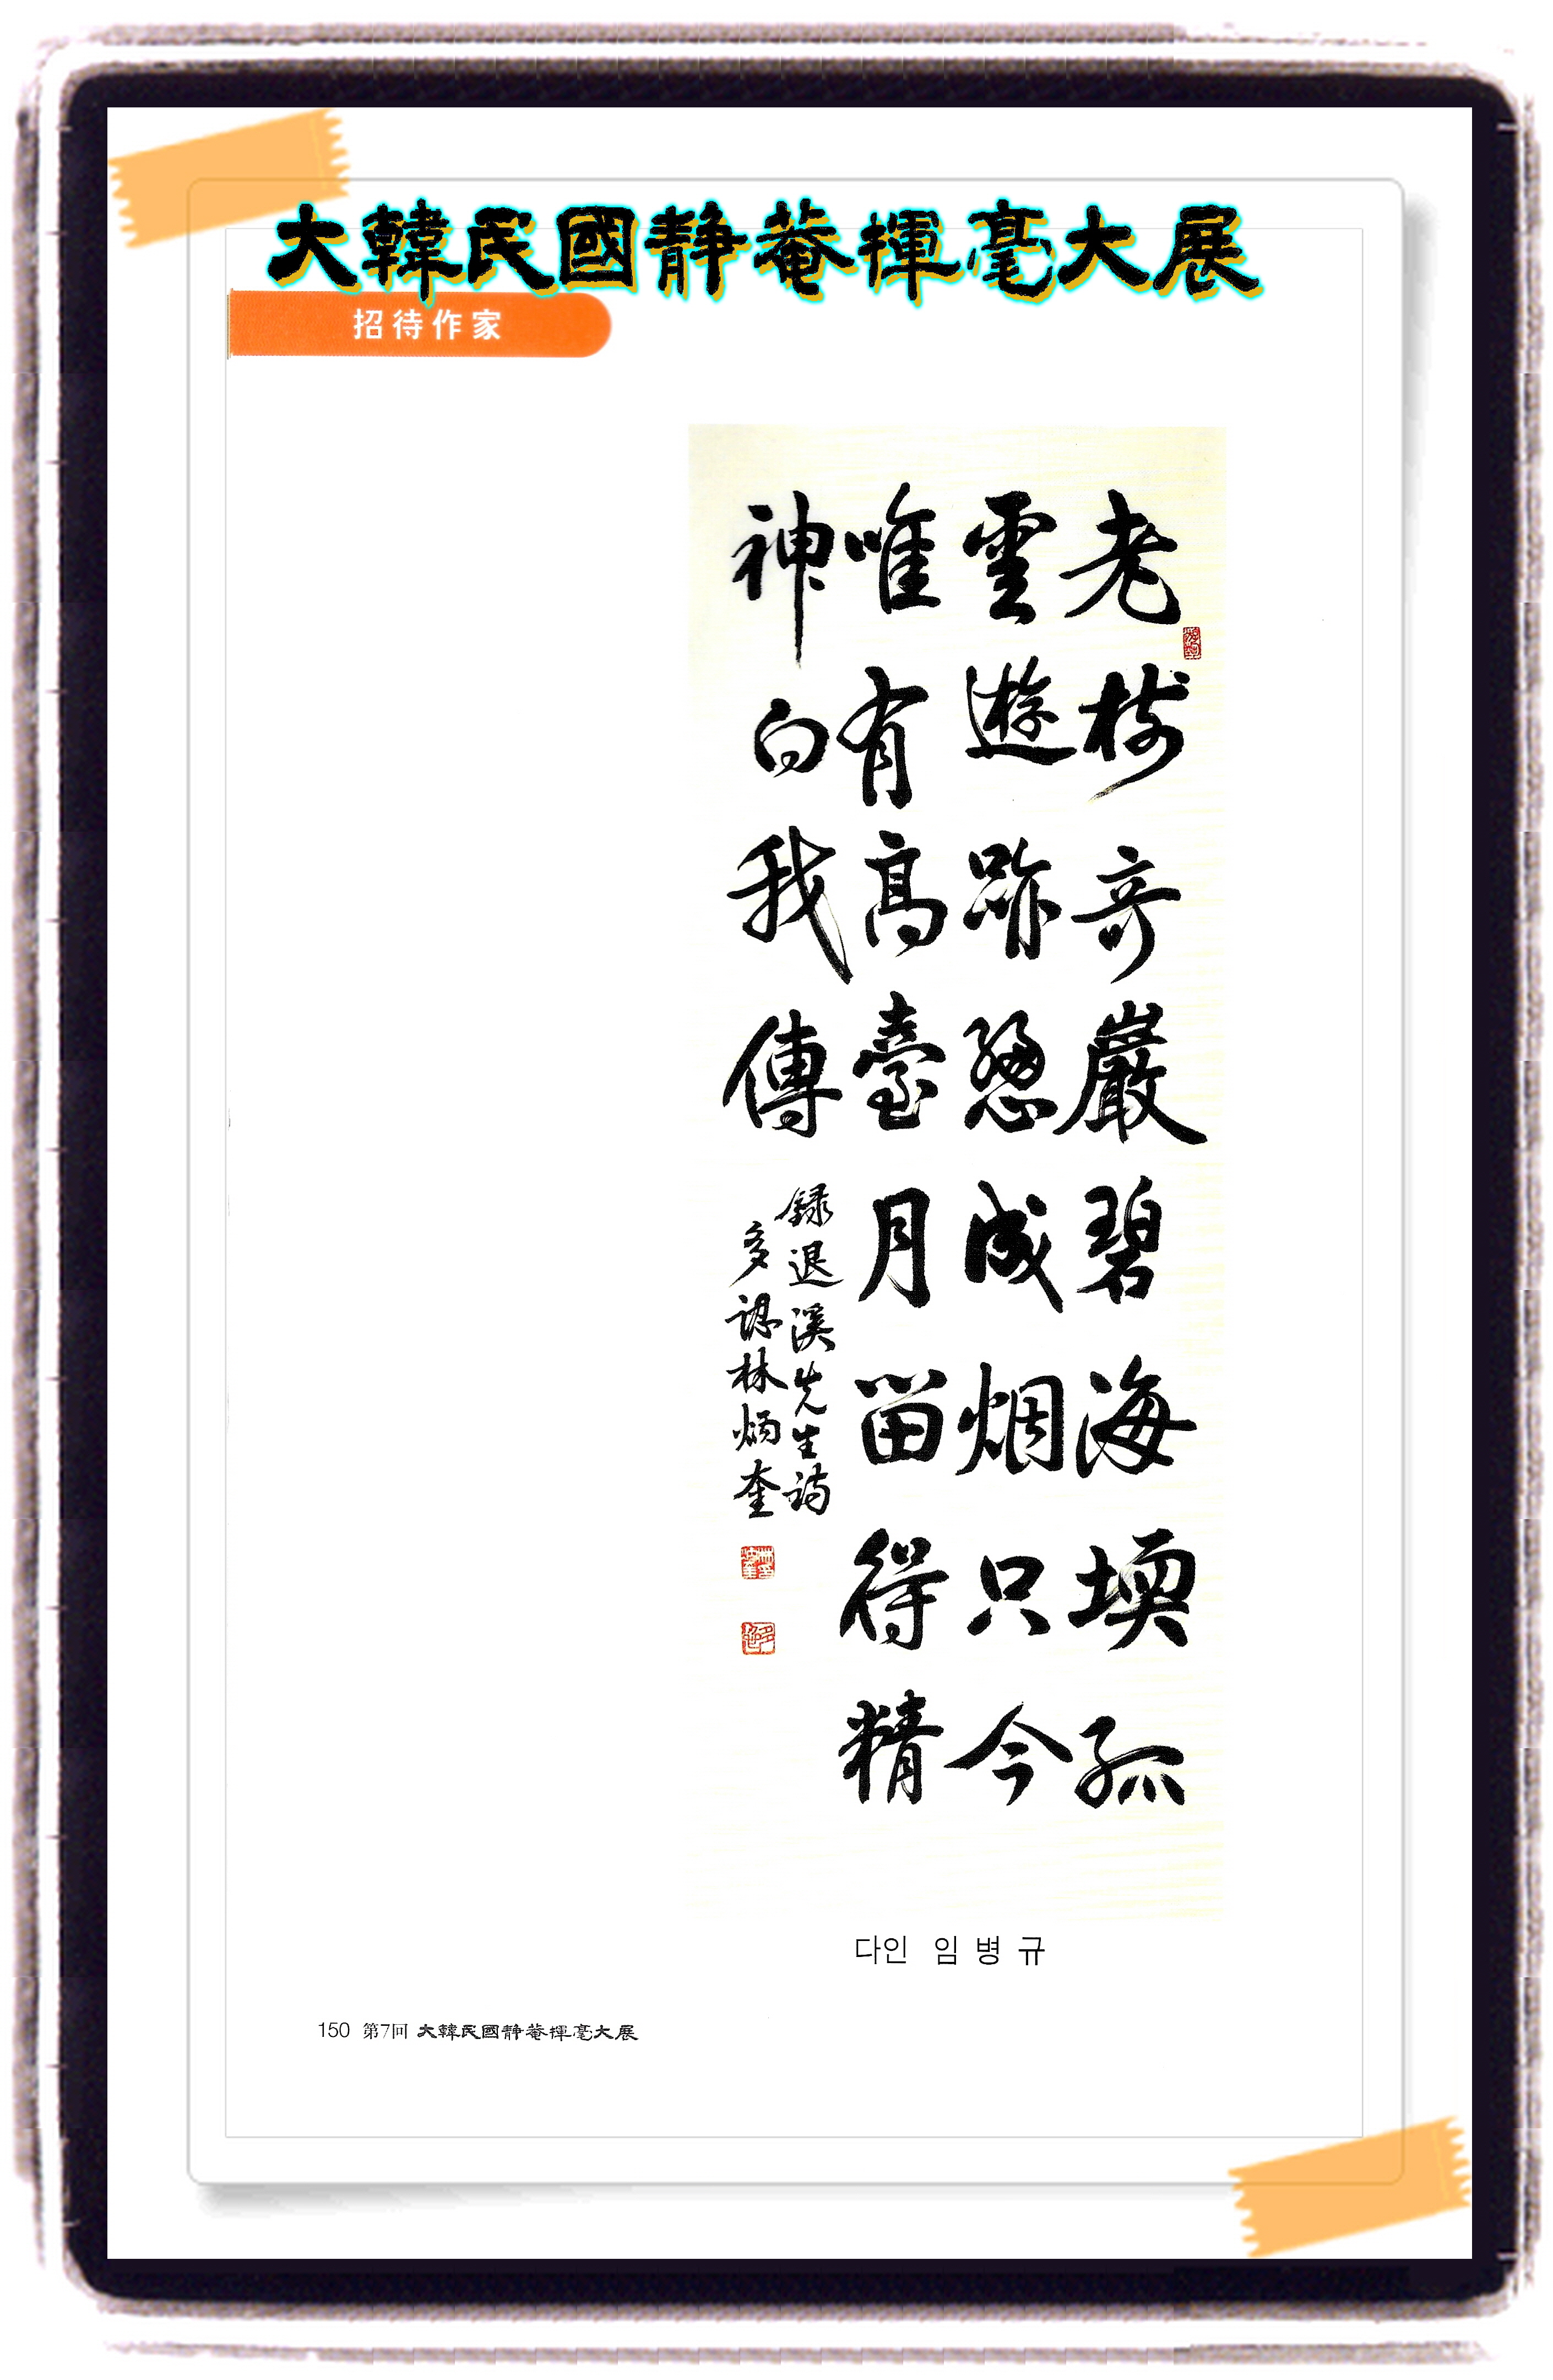 大韓民國靜菴揮毫大展
招待作家
老樹奇巖碧海堧孤
雲遊跡總成烟只今
唯有高臺月留得精
神向我傳
錄退溪先生詩
多認林炳奎
다인 임병규
150 第7回 大韓民國靜菴揮毫大展